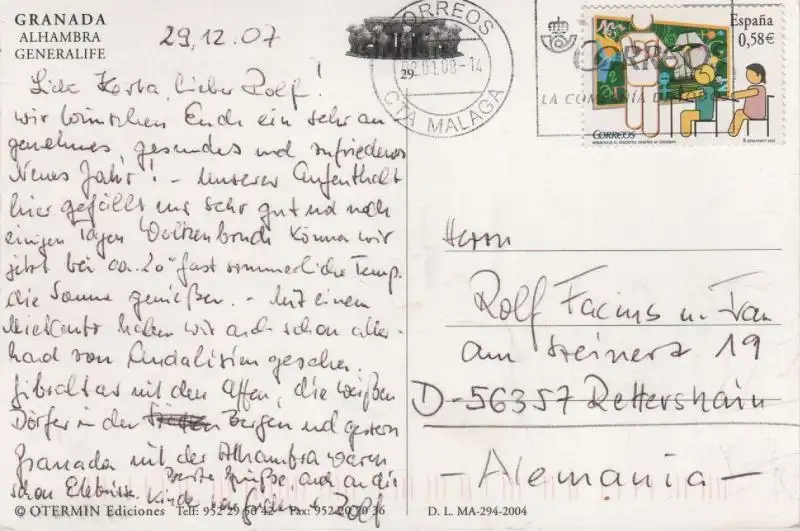 GRANADA
ALHAMBRA
GENERALIFE
29.12.07
Liebe Herta, lieber Rolf!
wir wünschen Euch ein sehr an-
genehmes gesundes und zufriedenes
Neues Jahr! - Unserer Aufenthalt
hier gefällt uns sehr gut und nach
einigen Tagen Wolkenbruch können wir
jetzt bei ca. 20° fast sommerliche Temp.
die Sonne genießen. - Mit einem
Mietauto haben wir auch schon aller-
hand von Andalusien gesehen.
Gibraltar mit den Affen, die weißen
Dörfer in den Bergen und gestern
Granada mit der Alhambra waren
schon Erlebnisse. Beste Grüße, auch an die
Kinder
© OTERMIN Ediciones Telf: 952 29 50 42 - Fax: 952 20 70 36
CORREOS
29-
02.01.08-14
CTA MALAGA
CORREOS
LA COMPAÑIA DE
España
0,58€
CORREOS
Herrn
Rolf Facius u. Frau
am Steinerz 19
D-56357 Rettershain
- Alemania -
D. L. MA-294-2004